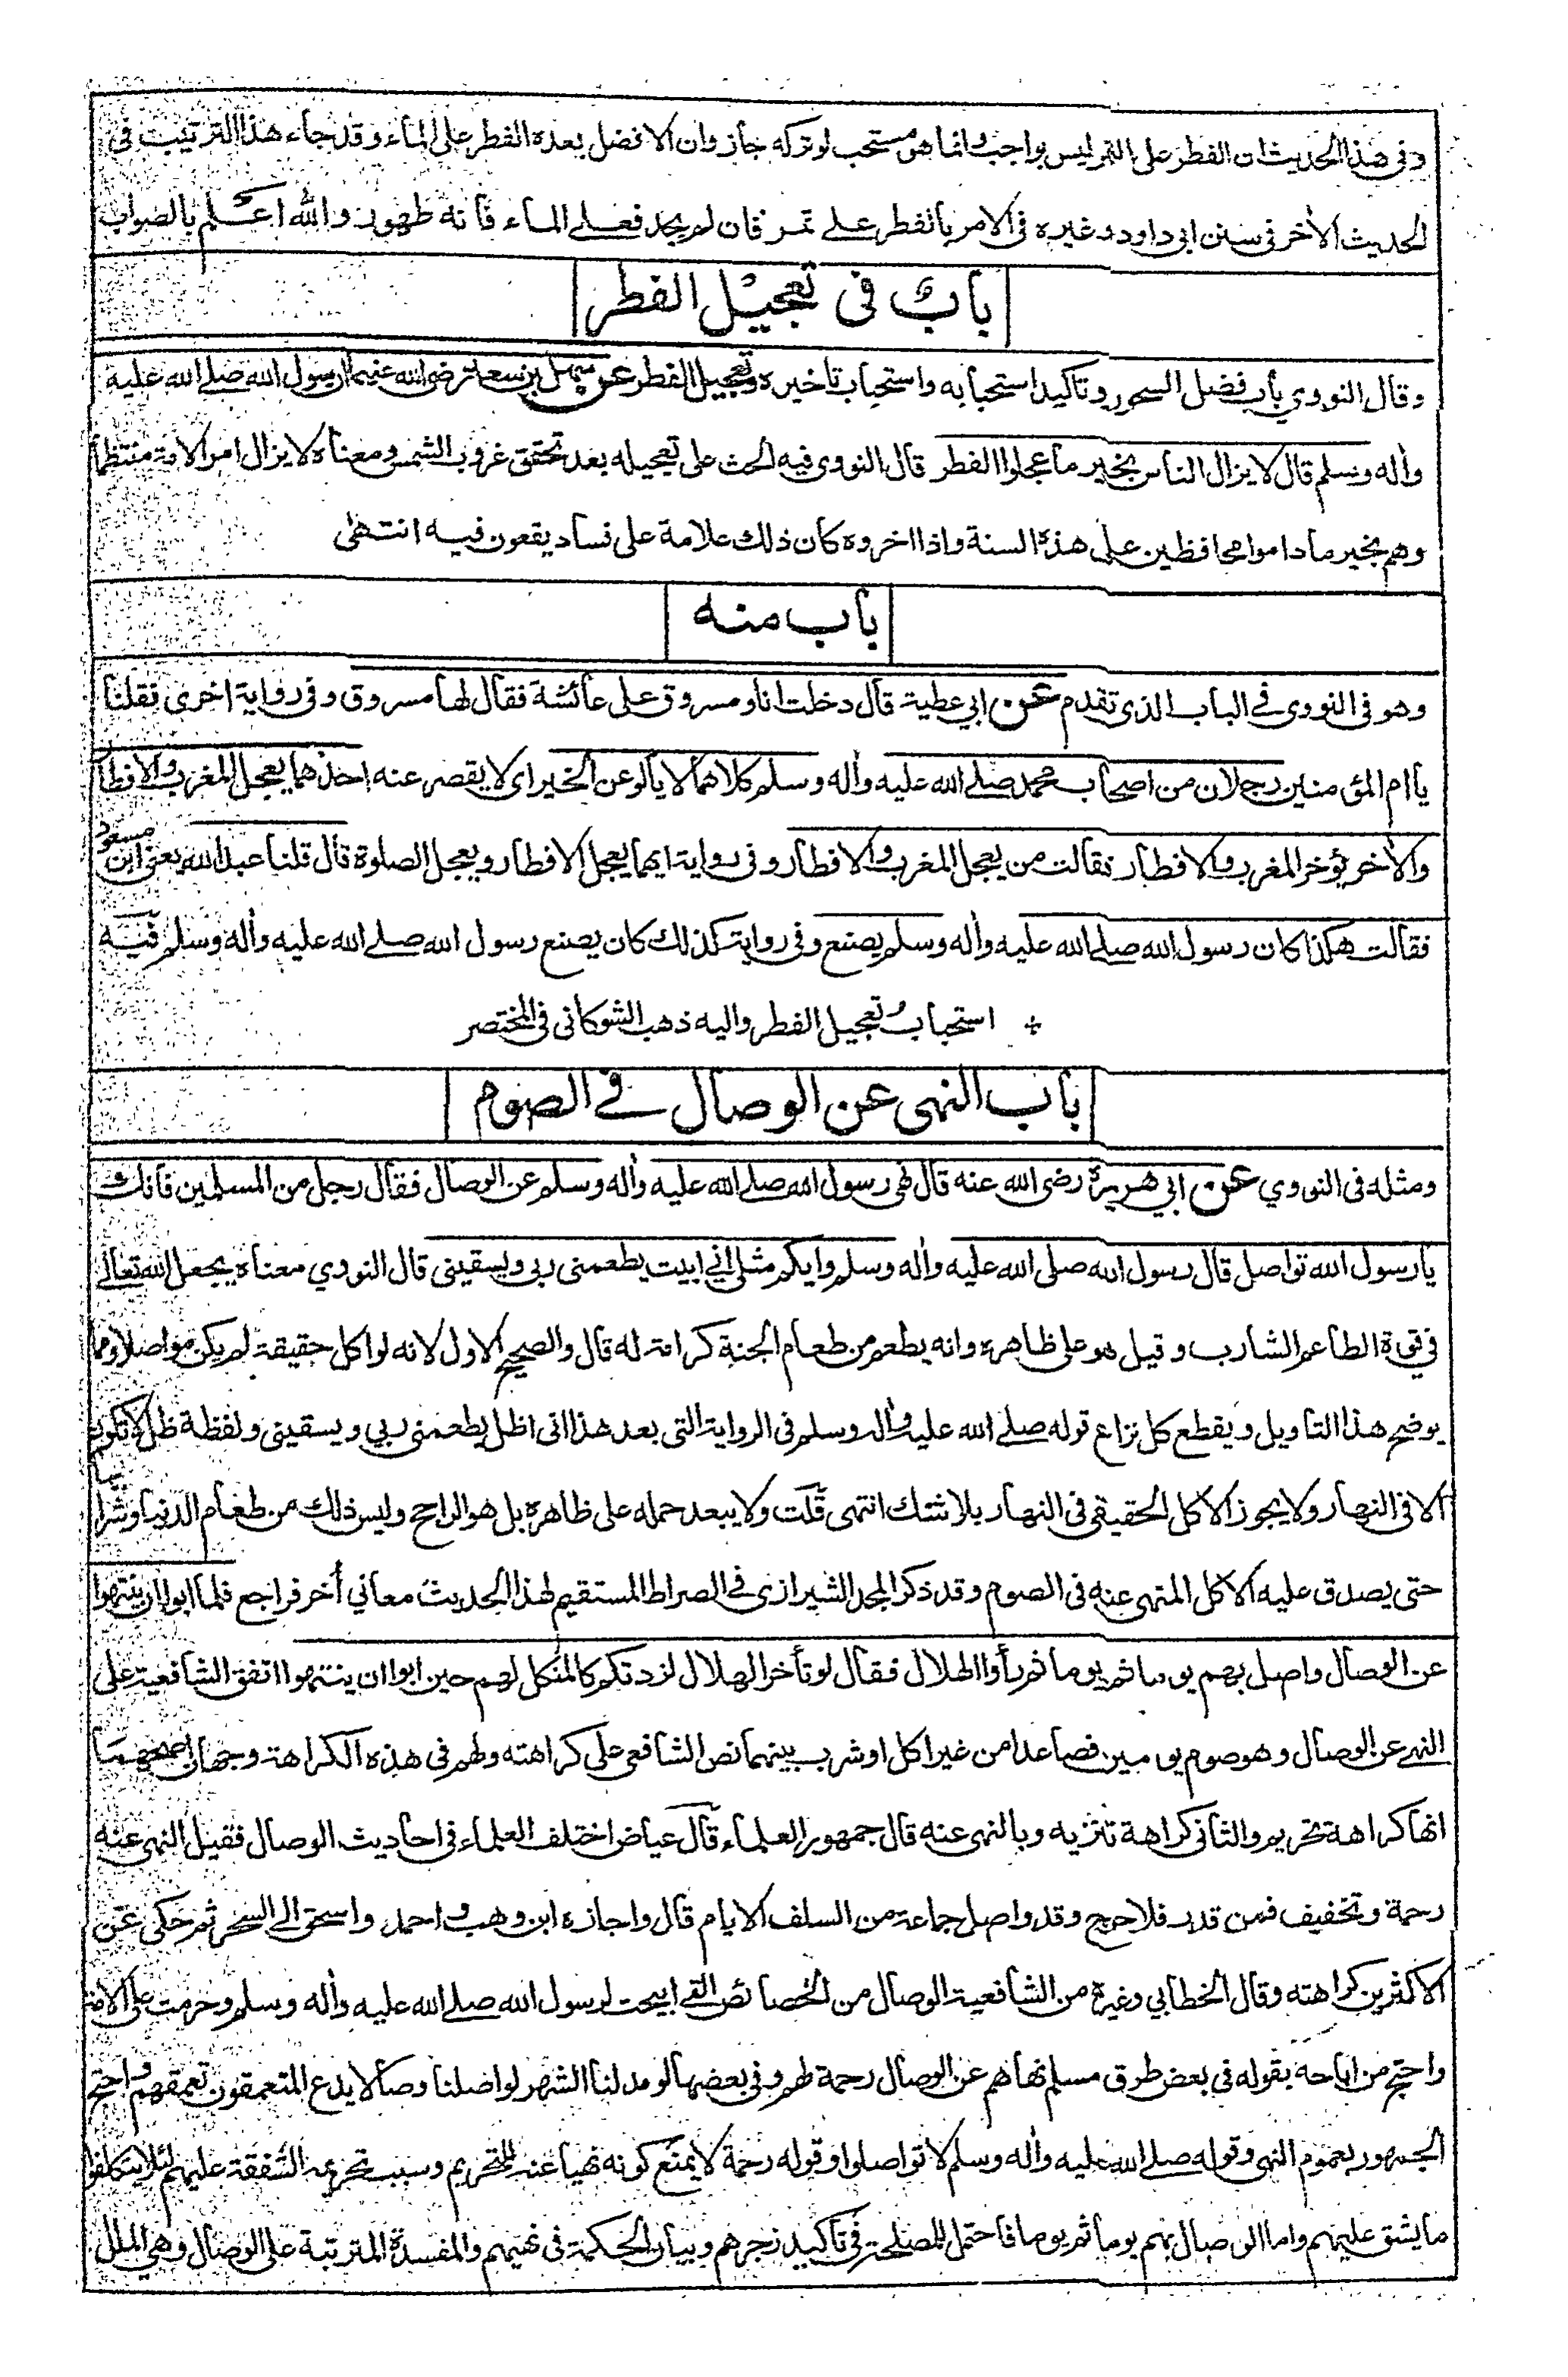 وفى هذا الحديث ان الفطر على التمر ليس بواجب وانما هو مستحب لو تركه جاز وان الافضل بعده الفطر على الماء وقد جاء هذا الترتيب فى
الحديث الاخر فى سنن ابى داود وغيره فى الامر بالفطر على تمر فان لم يجد فعلى الماء فانه طهور والله اعلم بالصواب
باب فى تعجيل الفطر
وقال النووي باب فضل السحور وتاكيد استحبابه واستحباب تاخيره وتعجيل الفطر عن سهل بن سعد رضى الله عنهما ان رسول الله صلے الله عليه
واٰله وسلم قال لا يزال الناس بخير ما عجلوا الفطر قال النووى فيه الحث على تعجيله بعد تحقق غروب الشمس ومعناه لا يزال امر الامة منتظما
وهم بخير ما داموا محافظين على هذه السنة واذا اخروه كان ذلك علامة على فساد يقعون فيه انتهى
باب منه
وهو فى النووى فے الباب الذى تقدم عن ابي عطية قال دخلت انا ومسروق على عائشة فقال لها مسروق وفى رواية اخرى فقلنا
يا ام المؤمنين رجلان من اصحاب محمد صلے الله عليه واٰله وسلم كلاهما لا يألو عن الخير اى لا يقصر عنه احدهما يعجل المغرب والافطار
والاٰخر يؤخر المغرب والافطار فقالت من يعجل المغرب والافطار وفى رواية ايهما يعجل الافطار ويعجل الصلوة قال قلنا عبد الله يعنى ابن مسعود
فقالت هكذا كان رسول الله صلے الله عليه واٰله وسلم يصنع وفى رواية كذلك كان يصنع رسول الله صلے الله عليه واٰله وسلم فيه
استحباب تعجيل الفطر واليه ذهب الشوكانى فى المختصر
باب النهى عن الوصال فے الصوم
ومثله فى النووي عن ابي هريرة رضى الله عنه قال نهى رسول الله صلے الله عليه واٰله وسلم عن الوصال فقال رجل من المسلمين فانك
يا رسول الله تواصل قال رسول الله صلى الله عليه واٰله وسلم وايكم مثلى انى ابيت يطعمنى ربى ويسقينى قال النووي معناه يجعل الله تعالى
في قوة الطاعم الشارب وقيل هو على ظاهره وانه يطعم من طعام الجنة كرامة له قال والصحيح الاول لانه لو اكل حقيقة لم يكن مواصلا ومما
يوضح هذا التاويل ويقطع كل نزاع قوله صلے الله عليه واٰله وسلم فى الرواية التى بعد هذا انى اظل يطعمنى ربي ويسقينى ولفظة ظل لا تكون
الا فى النهار ولا يجوز الاكل الحقيقى فى النهار بلا شك انتهى قلت ولا يبعد حمله على ظاهره بل هو الراجح وليس ذلك من طعام الدنيا وشرابها
حتى يصدق عليه الاكل المنهى عنه فى الصوم وقد ذكر المجد الشيرازى فے الصراط المستقيم لهذا الحديث معاني اُخر فراجع فلما ابوا ان ينتهوا
عن الوصال واصل بهم يوما ثم يوما ثم رأوا الهلال فقال لو تأخر الهلال لزدتكم كالمنكل لهم حين ابوا ان ينتهوا اتفق الشافعية على
النهے عن الوصال وهو صوم يومين فصاعدا من غير اكل او شرب بينهما نص الشافعي على كراهته ولهم فى هذه الكراهة وجهان اصحهما
انها كراهة تحريم والثانى كراهة تنزيه وبالنهى عنه قال جمهور العلماء قال عياض اختلف العلماء فى احاديث الوصال فقيل النهى عنه
رحمة وتخفيف فمن قدر فلا حرج وقد واصل جماعة من السلف الايام قال واجازه ابن وهب واحمد واسحق الى السحر ثم حكى عن
الاكثرين كراهته وقال الخطابي وغيره من الشافعية الوصال من الخصائص التى ابيحت لرسول الله صلے الله عليه واٰله وسلم وحرمت على الامة
واحتج من اباحه بقوله في بعض طرق مسلم نهاهم عن الوصال رحمة لهم وفى بعضها لو مد لنا الشهر لواصلنا وصالا يدع المتعمقون تعمقهم واحتج
الجمهور بعموم النهى وقوله صلے الله عليه واٰله وسلم لا تواصلوا وقوله رحمة لا يمنع كونه نهيا عنه للتحريم وسبب تحريمه الشفقة عليهم لئلا يتكلفوا
ما يشق عليهم واما الوصال بهم يوما ثم يوما فاحتمل للمصلحة فى تأكيد زجرهم وبيان الحكمة فى نهيهم والمفسدة المترتبة على الوصال وهي الملل